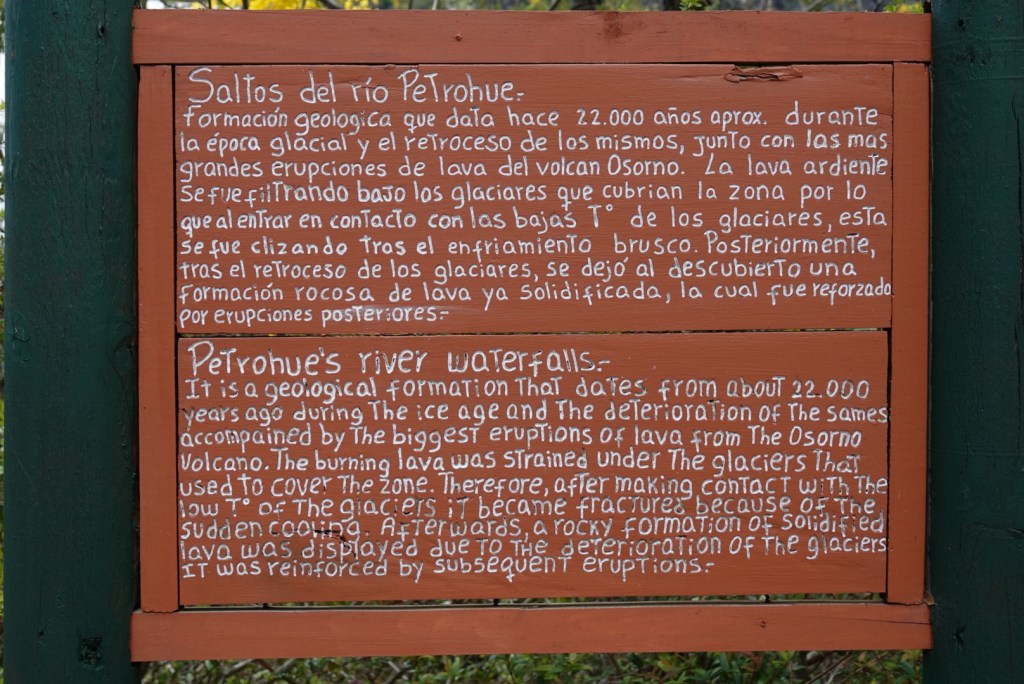 Saltos del río Petrohue.-
Formación geologica que data hace 22.000 años aprox. durante
la época glacial y el retroceso de los mismos, junto con las mas
grandes erupciones de lava del volcan Osorno. La lava ardiente
se fue filtrando bajo los glaciares que cubrian la zona por lo
que al entrar en contacto con las bajas T° de los glaciares, esta
se fue clizando tras el enfriamiento brusco. Posteriormente,
tras el retroceso de los glaciares, se dejó al descubierto una
formación rocosa de lava ya solidificada, la cual fue reforzado
por erupciones posteriores.-
Petrohue's river waterfalls.-
It is a geological formation that dates from about 22.000
years ago during the ice age and the deterioration of the sames
accompained by the biggest eruptions of lava from the Osorno
Volcano. The burning lava was strained under the glaciers that
used to cover the zone. Therefore, after making contact with the
low T° of the glaciers it became fractures because of the
sudden cooling. Afterwards, a rocky formation of solidified
lava was displayed due to the deterioration of the glaciers
it was reinforced by subsequent eruptions.-